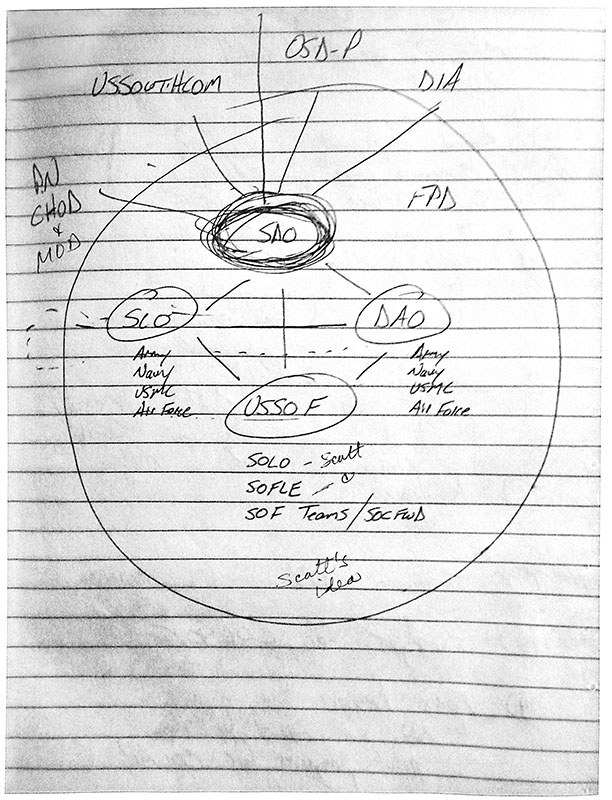 OSD-P
USSOUTHCOM
DIA
PN
CHOD
&
MOD
FPD
SDO
SCO
DAO
Army
Navy
USMC
Air Force
Army
Navy
USMC
Air Force
USSOF
SOLO - Scott
SOFLE -
SOF Teams/SOCFWD
Scott's
idea